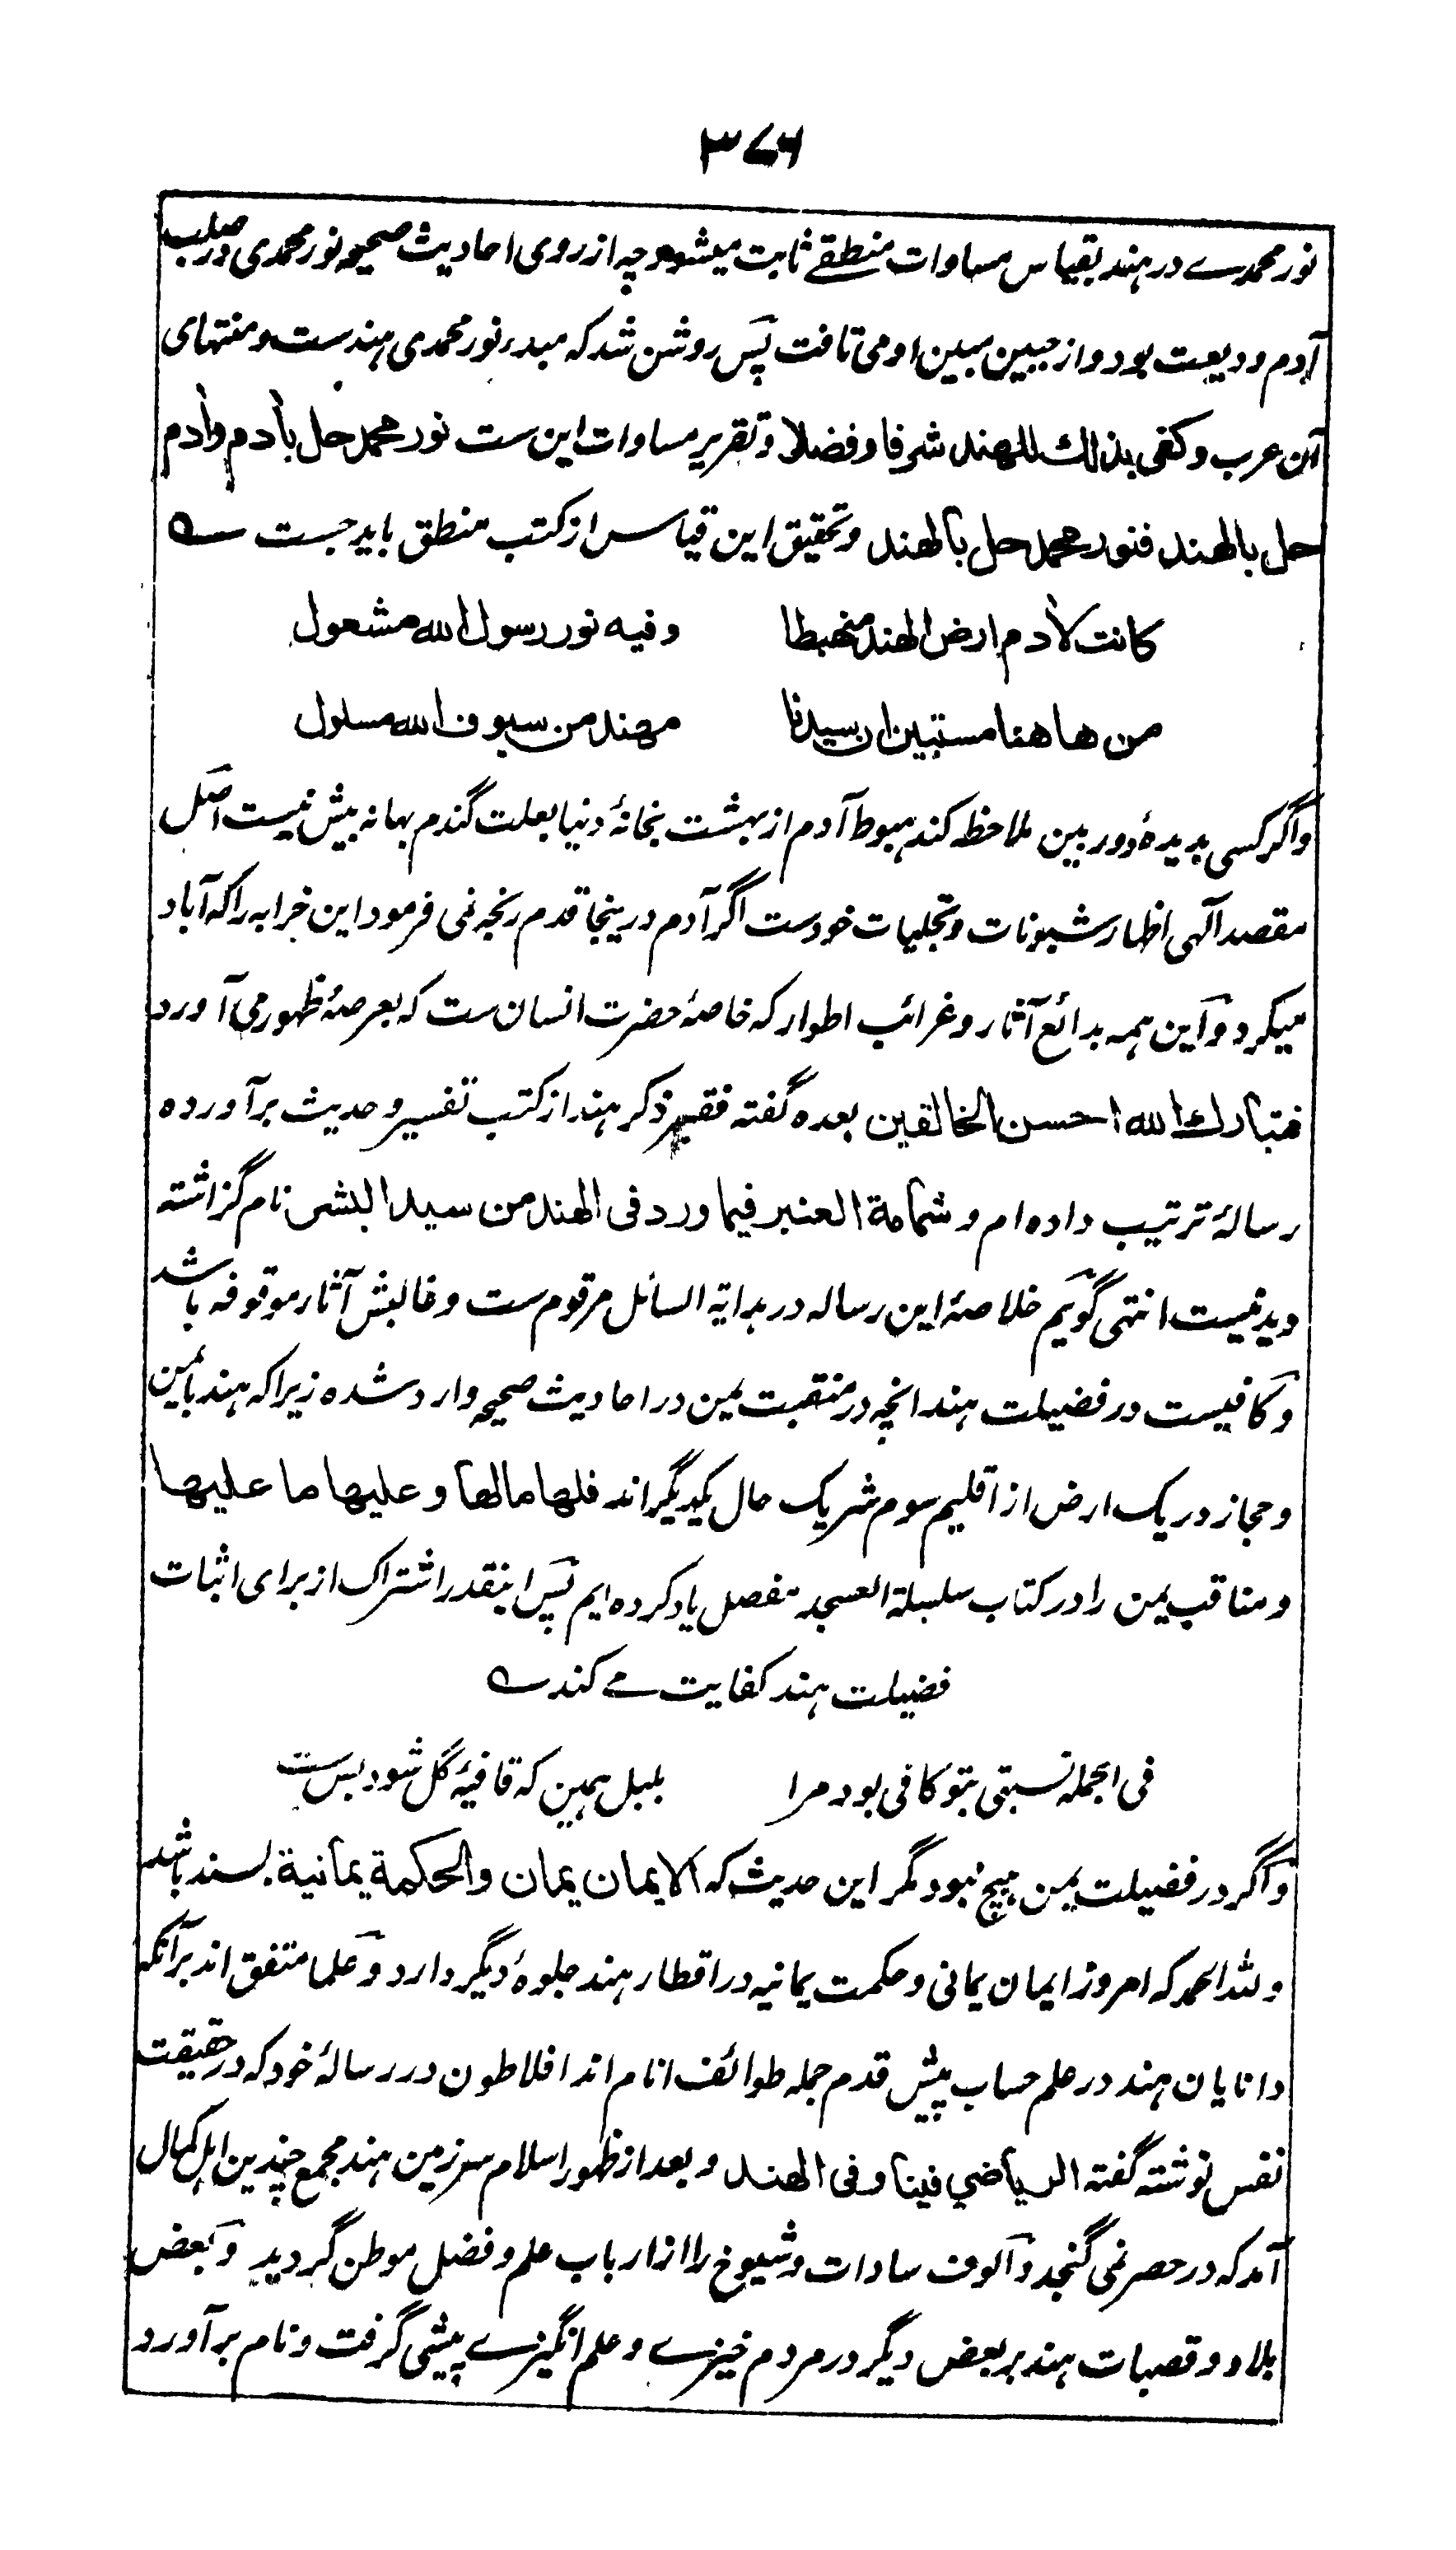 ۳۷۶
نور محمدے در هند بقیاس مساوات منطقے ثابت میشود چه از روی احادیث صحیحه نور محمدی در صلب
آدم ودیعت بود و از جبین مبین او می تافت پس روشن شد که مبدء نور محمدی هندست و منتهای
آن عرب و کفی بذلك للهند شرفا و فضلا و تقریر مساوات این ست نور محمد حل بآدم وآدم
حل بالهند فنور محمد حل بالهند و تحقیق این قیاس از کتب منطق باید جست ے
کانت لآدم ارض الهند منهبطا وفیه نور رسول الله مشعول
من هاهنا مستبین ان سیدنا مهند من سیوف الله مسلول
و اگر کسی بدیدۀ دوربین ملاحظه کند هبوط آدم از بهشت بخانۀ دنیا بعلت گندم بهانه بیش نیست اصل
مقصد آلهی اظهار شیونات و تجلیات خودست اگر آدم درینجا قدم رنجه نمی فرمود این خرابه را که آباد
میکرد و این همه بدائع آثار و غرائب اطوار که خاصۀ حضرت انسان ست که بعرصۀ ظهور می آورد
فتبارك الله احسن الخالقین بعده گفته فقیر ذکر هند از کتب تفسیر و حدیث برآورده
رسالۀ ترتیب داده ام و شمامة العنبر فیما ورد فی الهند من سید البشر نام گزاشته
دیدنیست انتهی گویم خلاصۀ این رساله در هدایة السائل مرقوم ست و غالبش آثار موقوفه باشد
و کافیست در فضیلت هند انچه در منقبت یمن در احادیث صحیحه وارد شده زیرا که هند با یمن
و حجاز در یک ارض از اقلیم سوم شریک حال یکدیگراند فلها مالها وعلیها ما علیها
و مناقب یمن را در کتاب سلسلة العسجد مفصل یاد کرده ایم پس اینقدر اشتراک از برای اثبات
فضیلت هند کفایت مے کند ے
فی الجمله نسبتی بتو کافی بود مرا بلبل همین که قافیۀ گل شود بس ست
و اگر در فضیلت یمن هیچ نبود مگر این حدیث که الایمان یمان والحکمة یمانیة بسند باشد
و لله الحمد که امروز ایمان یمانی و حکمت یمانیه در اقطار هند جلوۀ دیگر دارد و علما متفق اند برآنکه
دانایان هند در علم حساب پیش قدم جمله طوائف انام اند افلاطون در رسالۀ خود که در حقیقت
نفس نوشته گفته الریاضي فینا وفی الهند و بعد از ظهور اسلام سرزمین هند مجمع چندین اهل کمال
آمد که در حصر نمی گنجد و آلوف سادات و شیوخ را از ارباب علم و فضل موطن گردید و بعض
بلاد و قصبات هند بر بعض دیگر در مردم خیزے و علم انگیزے پیشی گرفت و نام برآورد